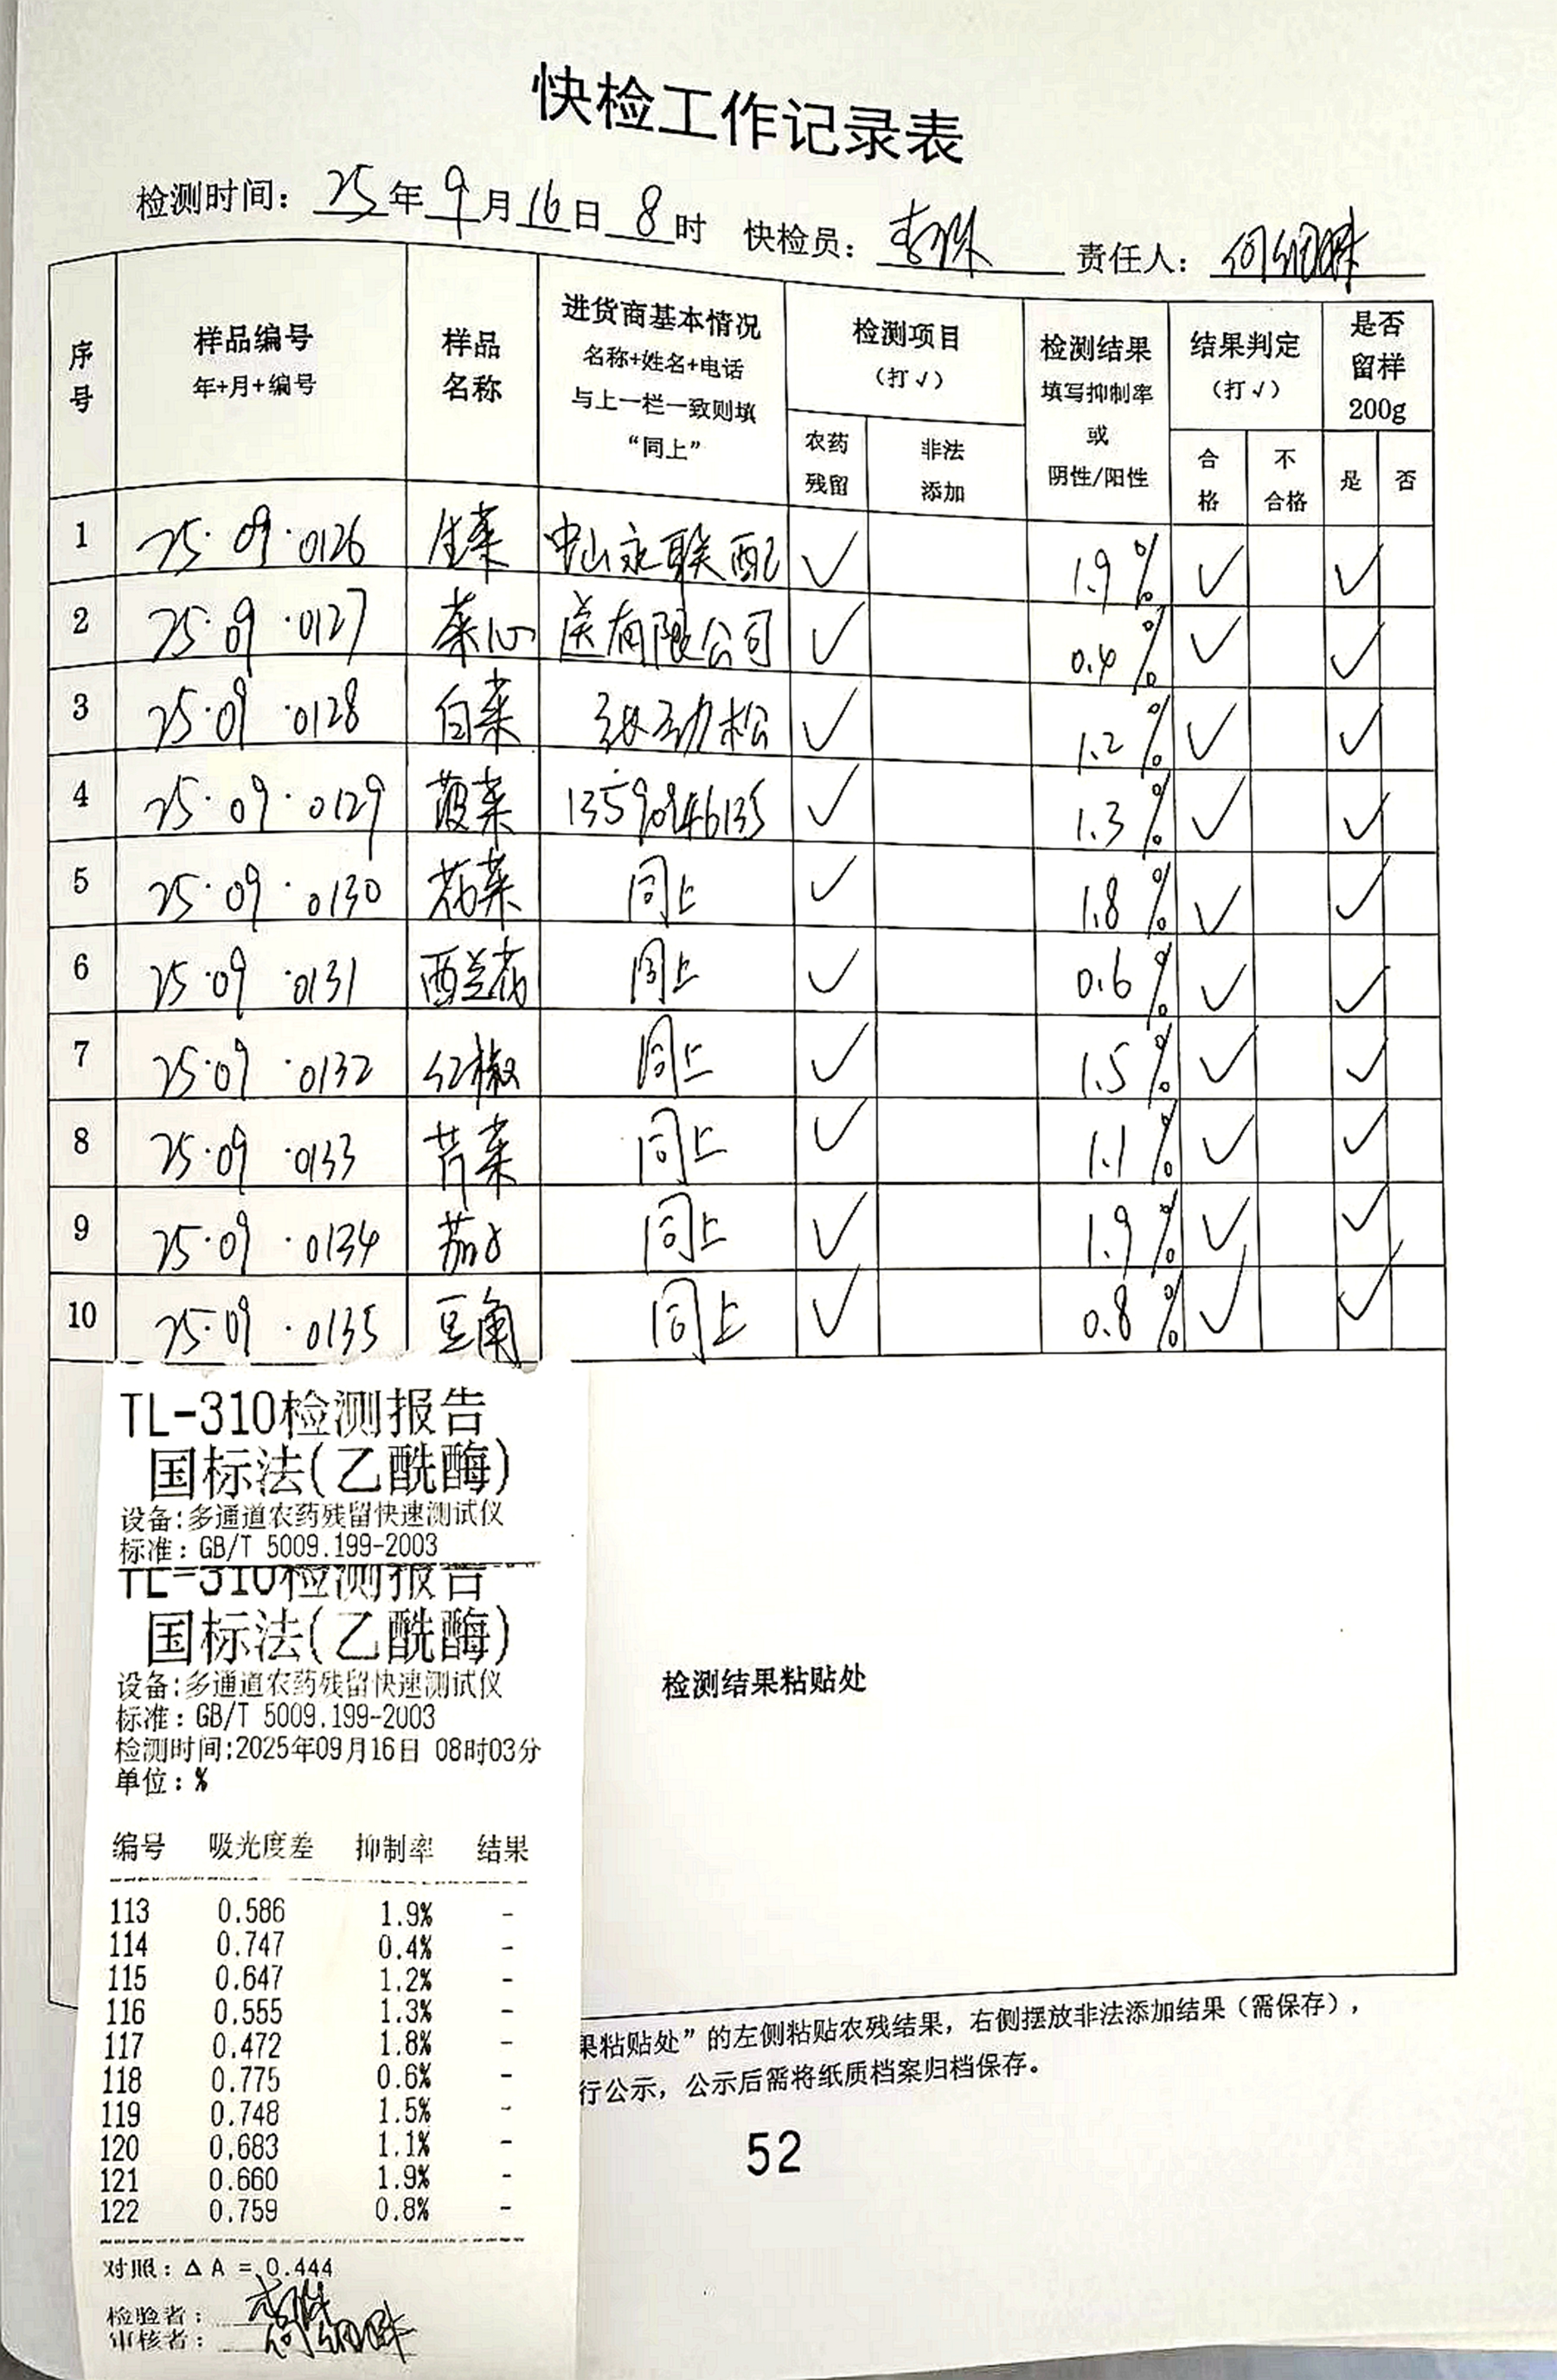 快检工作记录表
检测时间：25年9月16日8时 快检员： 责任人：何细妹
序号 样品编号 年+月+编号 样品名称 进货商基本情况 名称+姓名+电话 与上一栏一致则填“同上” 检测项目（打√） 农药残留 非法添加 检测结果 填写抑制率或阴性/阳性 结果判定（打√） 合格 不合格 是否留样200g 是 否
1 25·09·0126 生菜 中山永联配 √ 1.9% √ √
2 25·09·0127 菜心 送有限公司 √ 0.4% √ √
3 25·09·0128 白菜 张劲松 √ 1.2% √ √
4 25·09·0129 菠菜 √ 1.3% √ √
5 25·09·0130 花菜 同上 √ 1.8% √ √
6 25·09·0131 西兰花 同上 √ 0.6% √ √
7 25·09·0132 红椒 同上 √ 1.5% √ √
8 25·09·0133 芹菜 同上 √ 1.1% √ √
9 25·09·0134 茄子 同上 √ 1.9% √ √
10 25·09·0135 豆角 同上 √ 0.8% √ √
TL-310检测报告
国标法(乙酰酶)
设备:多通道农药残留快速测试仪
标准：GB/T 5009.199-2003
TL-310检测报告
国标法(乙酰酶)
设备:多通道农药残留快速测试仪
标准：GB/T 5009.199-2003
检测时间:2025年09月16日 08时03分
单位：%
编号 吸光度差 抑制率 结果
113 0.586 1.9% -
114 0.747 0.4% -
115 0.647 1.2% -
116 0.555 1.3% -
117 0.472 1.8% -
118 0.775 0.6% -
119 0.748 1.5% -
120 0.683 1.1% -
121 0.660 1.9% -
122 0.759 0.8% -
对照：△A = 0.444
检验者：
审核者：何细妹
检测结果粘贴处
果粘贴处”的左侧粘贴农残结果，右侧摆放非法添加结果（需保存），
行公示，公示后需将纸质档案归档保存。
52